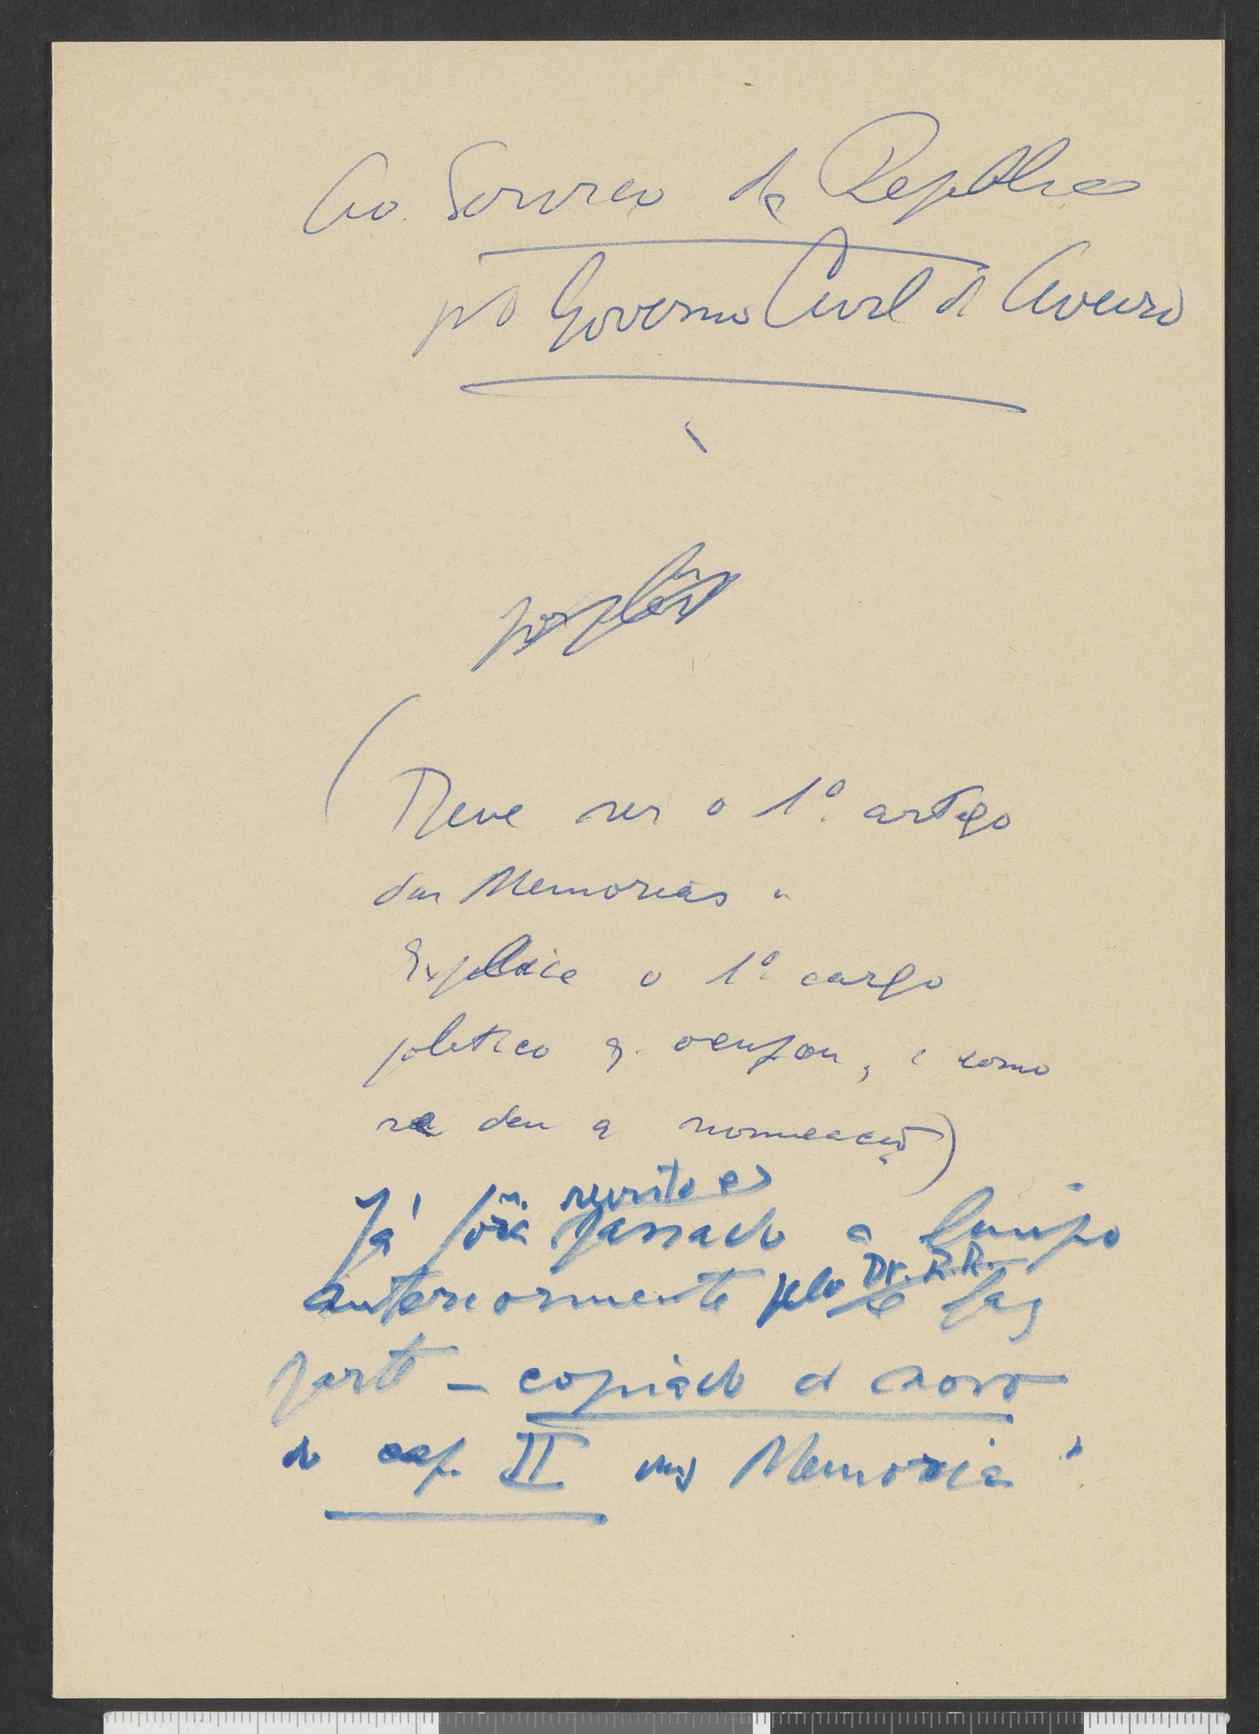 Ao Serviço da República
no Governo Civil de Aveiro
(Deve ser o 1º artigo
das Memorias.
Explica o 1º cargo
politico q. ocupou, e como
se deu a nomeação)
revisto e
Já fora passado a limpo
Dr. R.R.
anteriormente pelo e faz
parte – copiado d novo
do cap. II das Memorias